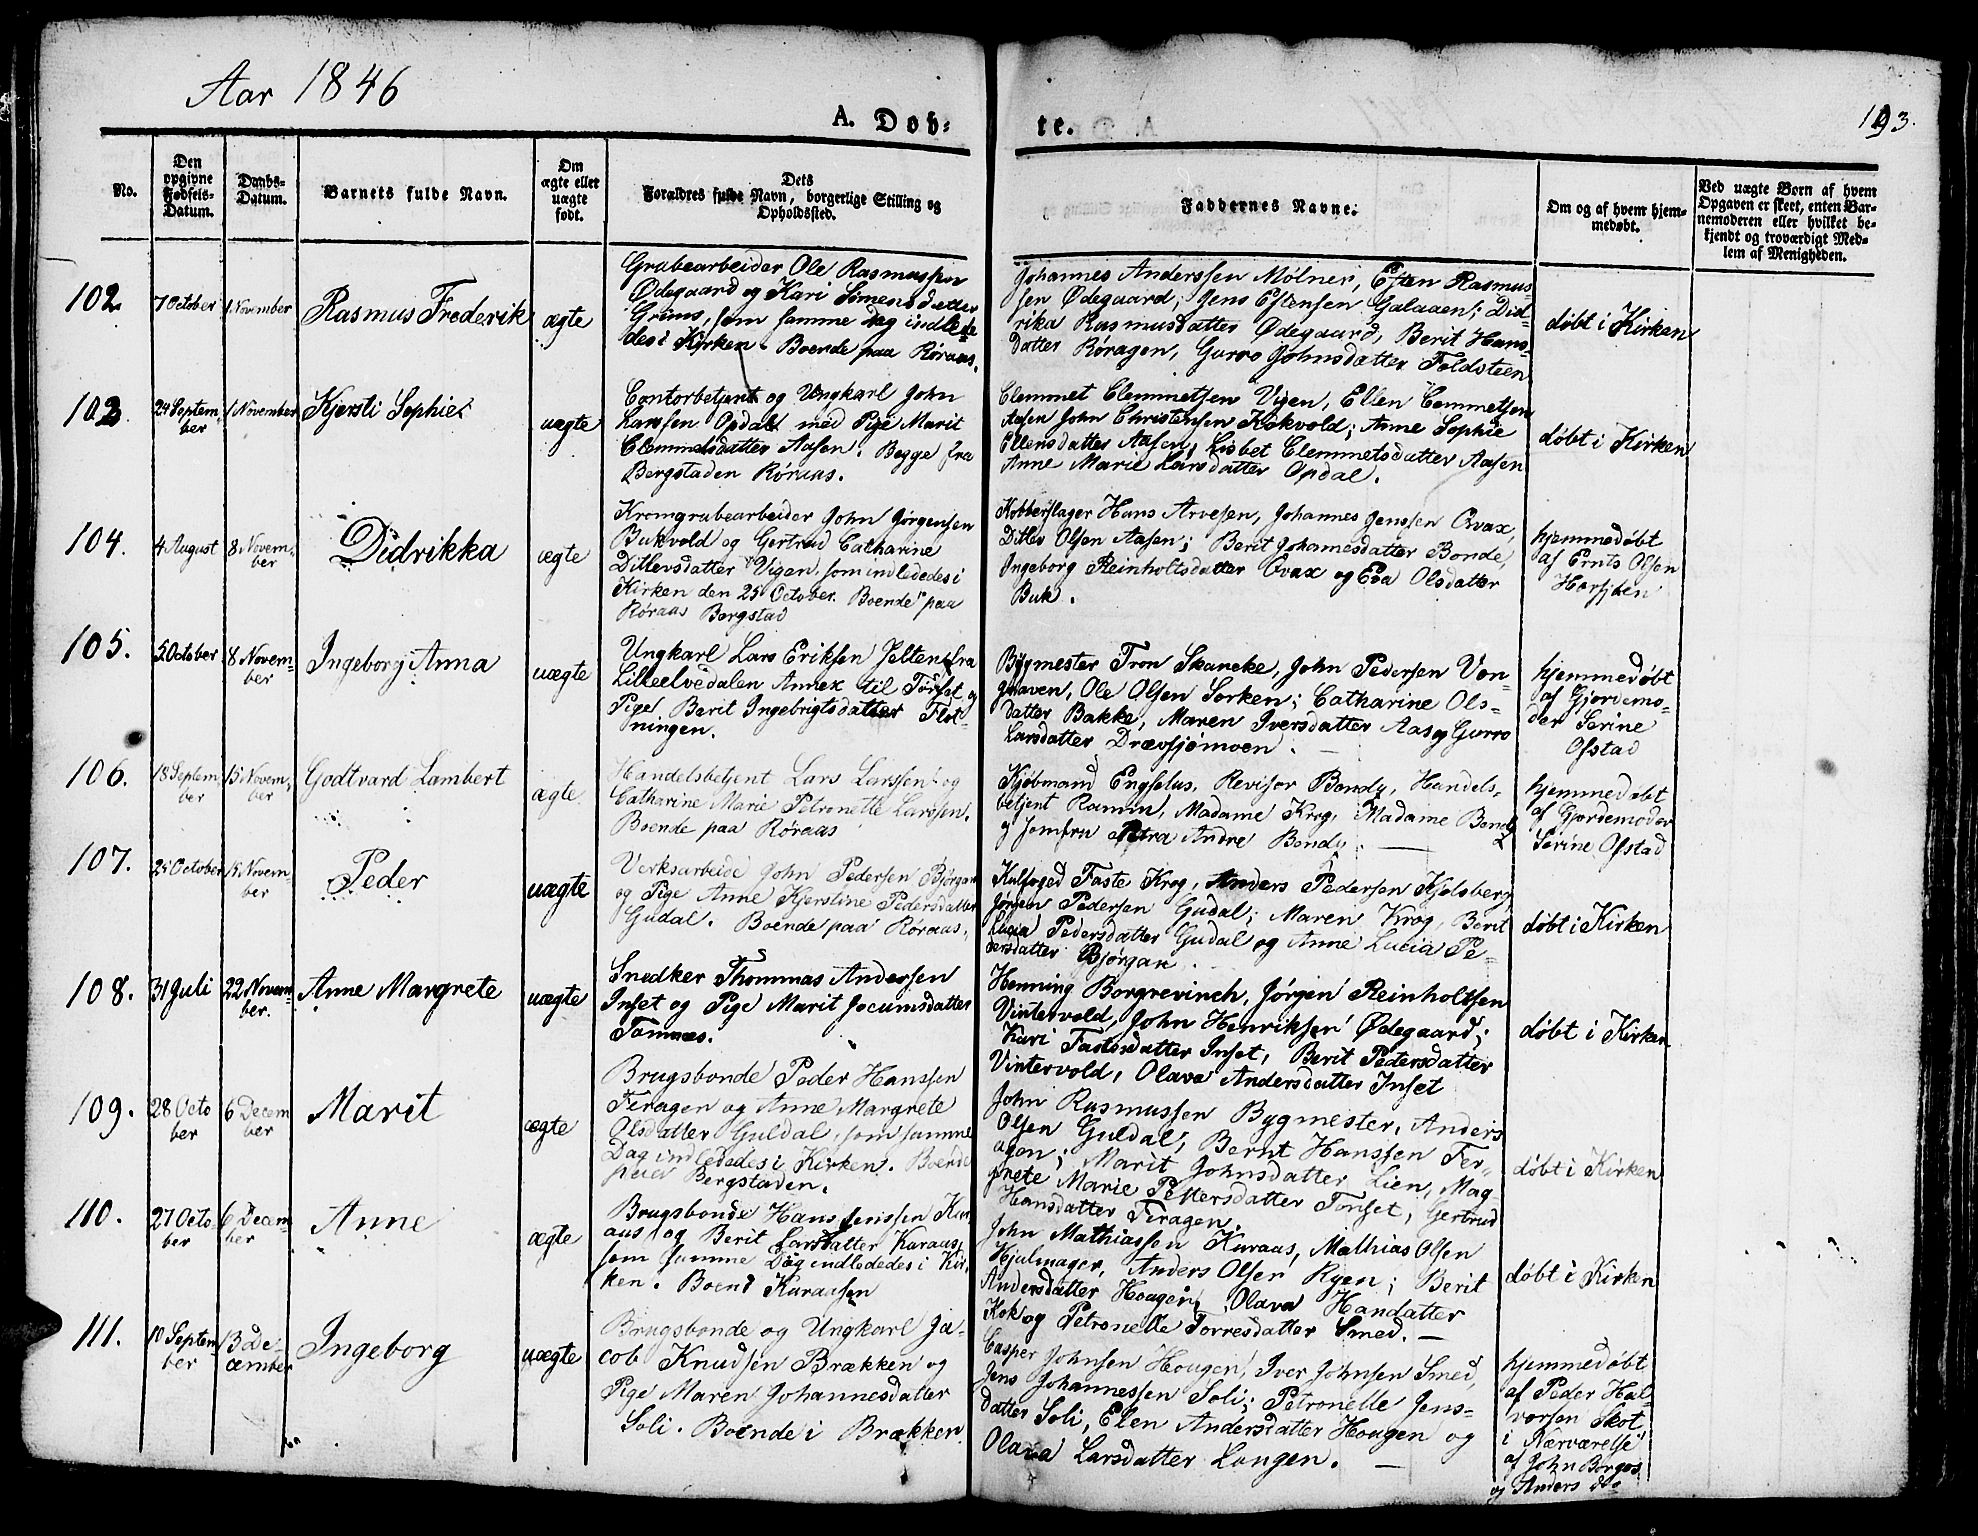 Aar 1846
A. Døb-
te.
193.
No.
Den
opgivne
Fødsels-
Datum.
Daabs-
Datum.
Barnets fulde Navn.
Om
ægte eller
uægte
født.
Dets
Forældres fulde Navn, borgerlige Stilling og
Opholdssted.
Faddernes Navne.
Om og af hvem hjem-
medøbt.
Ved uægte Børn af hvem
Opgaven er skeet, enten Bar-
nemoderen eller hvilket be-
kjendt og troværdigt Med-
lem af Menigheden.
102
7 October
1. November
Rasmus Frederik
ægte
Grubearbeider Ole Rasmussen
Ødegaard og Kari Simensdatter
Griins, som samme Dag indlede-
des i Kirken. Boende paa Røraas.
Johannes Anderssen Mølner, Esten Rasmus-
sen Ødegaard, Jens Estensen Galaaen; Did-
rika Rasmusdatter Ødegaard, Berit Hans-
datter Røragen, Gurro Johnsdatter Foldsteen
døbt i Kirken
103
24 Septem-
ber
1 November
Kjersti Sophie
uægte
Contorbetjent og Ungkarl John
Larssen Opdal med Pige Marit
Clemmetsdatter Aasen. Begge fra
Bergstaden Røraas.
Clemmet Clemmetsen Vigen, Ellen Cemmetsen
Aasen John Christensen Kokvold; Anne Sophie
Ellensdatter Aasen, Lisbet Clemmetsdatter Aasen
Anne Marie Larsdatter Opdal.
døbt i Kirken
104.
4 August
8 Novem-
ber
Didrikka
ægte
Kromgrubearbeider John Jørgensen
Bukvold og Gertrud Catharine
Ditlevsdatter Vigen, som indledesi
Kirken den 25 October. Boende paa
Røraas Bergstad
Kobberslager Hans Arvesen, Johannes Jenssen Qvax,
Ditlev Olsen Aasen; Berit Johannesdatter Bonde,
Ingeborg Reinholtsdatter Qvax og Eva Olsdatter
Buk.
hjemmedøbt
af Ernts Olsen
Harsjøen
105.
5 October
8 Novem-
ber
Ingeborg Anna
uægte
Ungkarl Lars Eriksen Jelten fra
Lilleelvedalen Annex til Tønset og
Pige Berit Ingebrigtsdatter Flot-
ningen.
Bygmester Tron Skancke, John Pedersen Von-
graven, Ole Olsen Sorken; Catharine Ols-
datter Bakke, Maren Iversdatter Aas og Gurro
Larsdatter Drævsjømoen.
hjemmedøbt
af Gjordemo-
der Serine
Ofstad
106.
18 Septem-
ber
15 Novem-
ber
Godtvard Lambert
ægte.
Handelsbetjent Lars Larssen og
Catharine Marie Petronette Larssen.
Boende paa Røraas
Kjøbmand Engselus, Revisor Bondy, Handels-
betjent Ramm, Madame Krog, Madame Bondy
og Jomfru Petra Andre Bondy.
hjemmedøbt
af Gjordemoder
Serine Ofstad
107.
25 October
15 Novem-
ber
Peder
uægte
Verksarbeide John Pedersen Bjørgan
og Pige Anne Kjerstine Pedersdatter
Gudal. Boende paa Røraas.
Kulfoged Faste Krog, Anders Pedersen Kjelsberg
Jørgen Pedersen Gudal; Maren Krog, Berit
Lucia Pedersdatter Gudal og Anne Lucia Pe-
dersdatter Bjørgan.
døbt i Kirken
108.
31 Juli
22 Novem-
ber.
Anne Margrete
uægte
Snedker Thommas Andersen
Inset og Pige Marit Jocumsdatter
Tamnæs.
Henning Borgrevinch, Jørgen Reinholtsen
Vintervold, John Henriksen Ødegaard;
Kari Fastesdatter Inset, Berit Pedersdatter
Vintervold, Olava Andersdatter Inset
døbt i Kirken
109.
28 Octo
ber
6 Decem
ber
Marit
ægte
Brugsbonde Peder Hanssen
Feragen og Anne Margrete
Olsdatter Guldal, som samme
Dag indledesdes i Kirken. Boende
paa Bergstaden.
John Rasmussen Bygmester, Anders
Olsen Guldal, Bernt Hanssen Fer-
agen; Marit Johnsdatter Lien, Mag-
grete Marie Pettersdatter Tonset, Gertrud
Hansdatter Feragen.
døbt i Kirken
110.
27 Octo-
ber
6 Decem
ber
Anne
ægte
Brugsbonde Hans Jenssen Kur-
aas og Berit Larsdatter Kuraas,
som samme Dag indlededes i Kir-
ken. Boend Kuraasen
John Mathiassen Kuraas, Mathias Olsen
Hjulmager, Anders Olsen Ryen; Berit
Andersdatter Hougen, Olava Handatter
Kok og Petronelle Torresdatter Smed.
døbt i Kirken
111.
10 Septem
ber
13 De-
cember
Ingeborg
uægte
Brugsbonde og Ungkarl Ja-
cob Knudsen Brækken og
Pige Maren Johannesdatter
Soli. Boende i Brækken
Casper Johnsen Hougen, Iver Johnsen Smed,
Jens Johannessen Soli; Petronelle Jens-
datter Soli, Elen Andersdatter Hougen og
Olava Larsdatter Langen.
hjemmedøbt
af Peder Hal-
vorsen Skot
i Nærværelse
af John Borgos
og Anders do